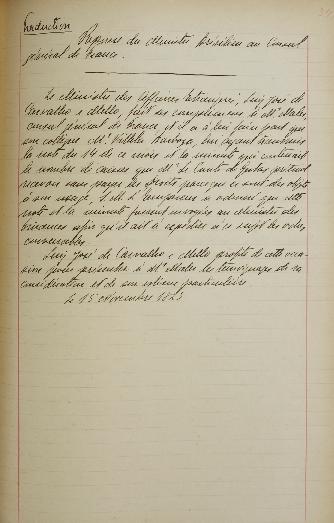 Traduction
Réponse du Ministre Brésilien au Consul
général de France.
Le Ministre des Affaires Etrangères, Luiz José de
Carvalho e Mello, fait ses compliments à Mr Maler,
consul général de France et il a à lui faire part que
son collègue Mr Villela Barboza, lui ayant transmis
la note du 14 de ce mois et la minute qui contenait
le nombre de caisses que Mr le Comte de Gestas prétend
recevoir sans payer les Droits parce que ce sont des objets
à son usage, S. M. l'Empereur a ordonné que cette
note et la minute fussent envoyées au Ministre des
Finances afin qu'il ait à expédier à ce sujet les ordres
convenables.
Luiz José de Carvalho e Mello profite de cette occa-
sion pour présenter à Mr Maler les témoignages de sa
considération et de son estime particulière
le 15 Novembre 1823